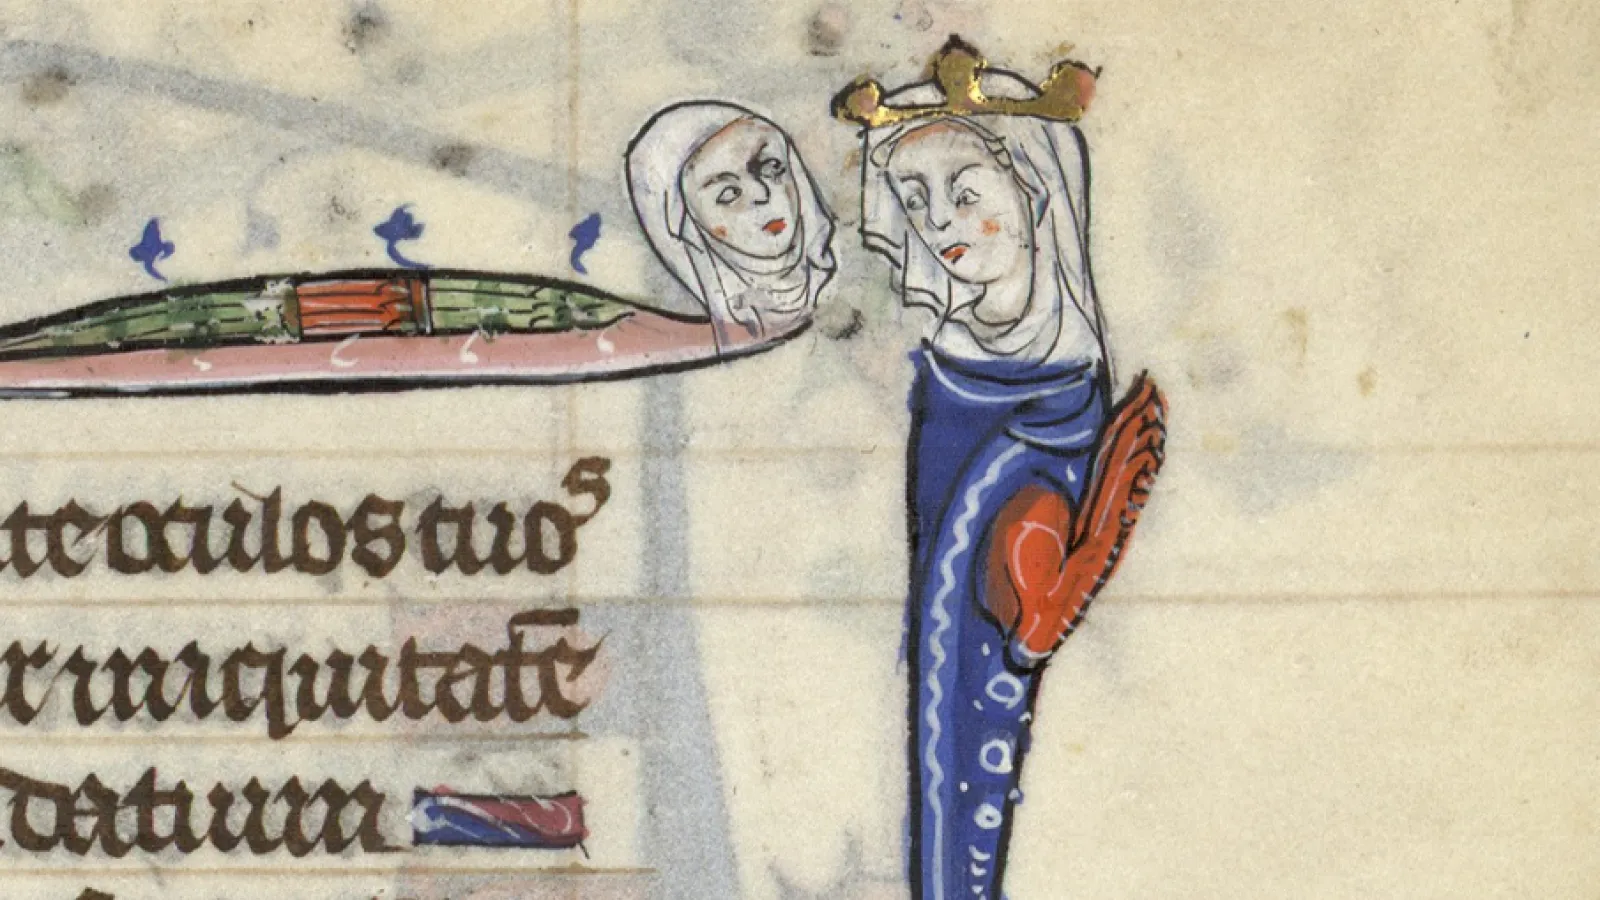 te oculos tuos
r iniquitatē
datium